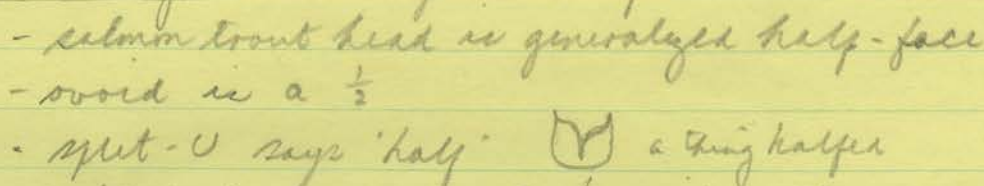 - salmon trout head is generalized half-face
- ovoid is a ½
- split-U says 'half' a thing halfed